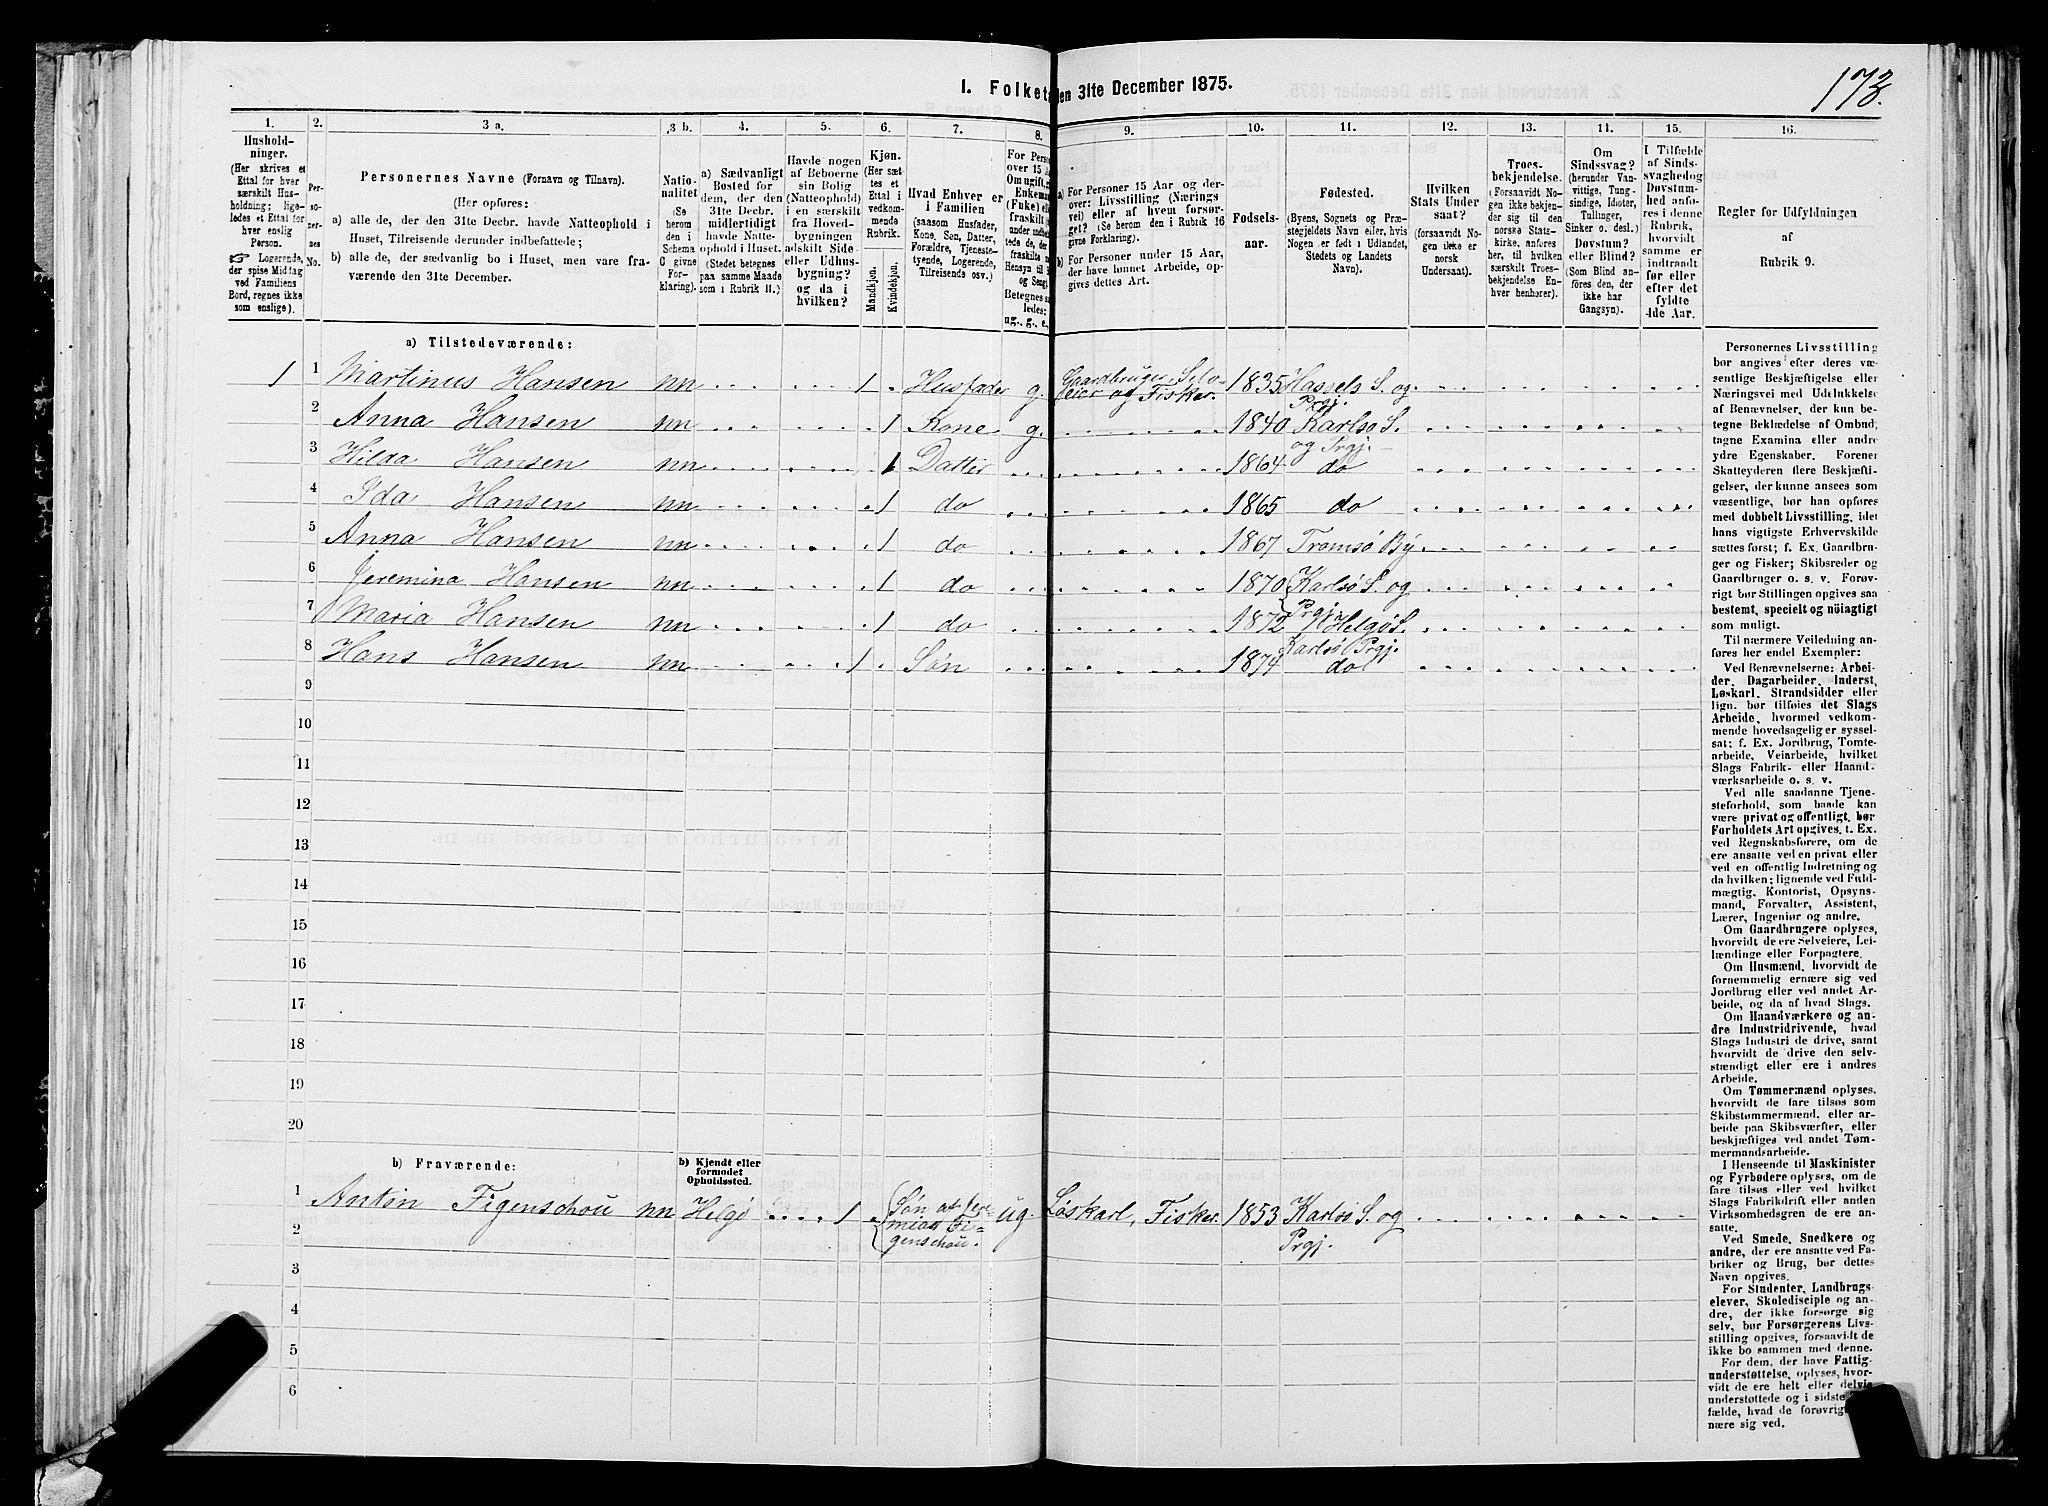 173.
I. Folketa
den 31te December 1875.
1. 2. 3 a. 3 b. 4. 5. 6. 7. 8. 9. 10. 11. 12. 13. 14. 15. 16.
Hushold-
ninger.
(Her skrives et
Ettal for hver
særskilt Hus-
holdning; lige-
ledes et Ettal for
hver enslig
Person.
☞ Logerende,
der spise Middag
ved Familiens
Bord, regnes ikke
som enslige).
Per-
so-
ner-
nes
No.
Personernes Navne (Fornavn og Tilnavn).
(Her opføres:
a) alle de, der den 31te Decbr. havde Natteophold i
Huset, Tilreisende derunder indbefattede;
b) alle de, der sædvanlig bo i Huset, men vare fra-
værende den 31te December.
Natio-
nalitet
(Se
herom
den i
Schema
C givne
For-
klaring).
a) Sædvanligt
Bosted for
dem, der den
31te Decbr.
midlertidigt
havde Natte-
ophold i Huset.
(Stedet betegnes
paa samme Maade
som i Rubrik 11.)
Havde nogen
af Beboerne
sin Bolig
(Natteophold)
i en særskilt
fra Hoved-
bygningen
adskilt Side-
eller Udhus-
bygning?
og da i
hvilken?
Kjøn.
(Her sæt-
tes et
Ettal i
vedkom-
mende
Rubrik.
Mandkjøn.
Kvindekjøn.
Hvad Enhver er
i Familien
(saasom Husfader,
Kone, Søn, Datter,
Forældre, Tjeneste-
tyende, Logerende,
Tilreisende osv.)
For Perso
over 15 Aar
Om ugift, g
Enkema
(Fuke) el
fraskilt
ug., g., e.,
a) For Personer 15 Aar og der-
over: Livsstilling (Nærings
vei) eller af hvem forsør-
get? (Se herom den i Rubrik 16
givne Forklaring).
b) For Personer under 15 Aar,
der have lønnet Arbeide, op-
gives dettes Art.
Fødsels-
aar.
Fødested.
(Byens, Sognets og Præ-
stegjeldets Navn eller, hvis
Nogen er født i Udlandet,
Stedets og Landets
Navn).
Hvilken
Stats Under
saat?
(forsaavidt No-
gen ikke er
norsk
Undersaat).
Troes-
bekjendelse.
(Forsaavidt No-
gen ikke bekjen-
der sig til den
norske Stats-
kirke, anføres
her, til hvilken
særskilt Troes-
bekjendelse En-
hver henhører).
Om
Sindssvag?
(herunder Van-
vittige, Idioter, Tung-
sindige,
Tullinger,
Sinker o. desl.)
Døvstum?
eller Blind?
(Som Blind an-
føres den, der
ikke har
Gangsyn).
I Tilfælde
af Sinds-
svaghed og
Døvstum-
hed anføres
i denne
Rubrik,
hvorvidt
samme er
indtraadt
før eller
efter det
fyldte
4de Aar.
Regler for Udfyldningen
af
Rubrik 9.
a) Tilstedeværende:
1 1 Martinus Hansen nn 1 Husfader g. Gaardbruger, Selv-
eier og Fisker. 1835 Hassels S. og
Prgj.
2 Anna Hansen nn 1 Kone g. 1840 Karlsø S.
og Prgj.
3 Hilda Hansen nn 1 Datter 1864 do
4 Ida Hansen nn 1 do 1865 do
5 Anna Hansen nn 1 do 1867 Tromsø By
6 Jeremina Hansen nn 1 do 1870 Karlsø S. og
Prgj.
7 Maria Hansen nn 1 do 1872 Helgø S.
Karlsø Prgj.
8 Hans Hansen nn 1 Søn 1874 do
9
10
11
12
13
14
15
16
17
18
19
20
b) Fraværende:
b) Kjendt eller
formodet
Opholdssted.
1 Anton Figenschou nn Helgø 1 Søn af Jere-
mias Fi-
genschou. ug Løskarl, Fisker. 1853 Karlsø S. og
Prgj.
2
3
4
5
6
Personernes Livsstilling
bør angives efter deres væ-
sentlige Beskjæftigelse eller
Næringsvei med Udelukkelse
af Benævnelser, der kun be-
tegne Beklædelse af Ombud,
tagne Examina eller andre
ydre Egenskaber. Forener
Skatteyderen flere Beskjæfti-
gelser, der kunne ansees som
væsentlige, bør han opføres
med dobbelt Livsstilling, idet
hans vigtigste Erhvervskilde
sættes først; f. Ex. Gaardbru-
ger og Fisker; Skibsreder og
Gaardbruger o. s. v. Forøv-
rigt bør Stillingen opgives saa
bestemt, specielt og nöiagtigt
som muligt.
Til nærmere Veiledning an-
føres her endel Exempler:
Ved Benævnelserne: Arbei-
der, Dagarbeider, Inderst,
Løskarl, Strandsidder eller
lign. bør tilføies det Slags
Arbeide, hvormed vedkom-
mende hovedsagelig er syssel-
sat; f. Ex. Jordbrug, Tomte-
arbeide, Veiarbeide, hvilket
Slags Fabrik- eller Haand-
værksarbeide o. s. v.
Ved alle saadanne Tjene-
steforhold, som baade kan
være privat og offentligt, bør
Forholdets Art opgives, t. Ex.
ved Regnskabsførere, om de
ere ansatte ved en privat eller
ved en offentlig Indretning og
da hvilken; lignende ved Fuld-
mægtig, Kontorist, Opsyns-
mand, Forvalter, Assistent,
Lærer, Ingeniør og andre.
Om Gaardbrugere oplyses,
hvorvidt de ere Selveiere, Lei-
lændinge eller Forpagtere.
Om Husmænd, hvorvidt de
fornemmelig ernære sig ved
Jordbrug eller ved andet Ar-
beide, og da af hvad Slags.
Om Haandværkere og an-
dre Industridrivende, hvad
Slags Industri de drive, samt
hvorvidt de drive den selv-
stændigt eller ere i andres
Arbeide.
Om Tømmermænd oplyses,
hvorvidt de fare tilsøs som
Skibstømmermænd, eller ar-
beide paa Skibsværfter, eller
beskjæftiges ved andet Tøm-
mermandsarbeide.
I Henseende til Maskinister
og Fyrbødere oplyses, om de
fare tilsøs eller ved hvilket
Slags Fabrikdrift eller anden
Virksomhedsgren de ere an-
satte.
Ved Smede, Snedkere og
andre, der ere ansatte ved Fa-
briker og Brug, bør dettes
Navn opgives.
For Studenter, Landbrugs-
elever, Skoledisciple og an-
dre, der ikke forsørge sig
selv, bør Forsørgerens Livs-
stilling opgives, forsaavidt de
ikke bo sammen med denne.
For dem, der have Fattig-
understøttelse, oplyses, hvor-
vidt de ere helt eller delvis
understøttede og i sidste
fælde, hvad de forøvrig
nære sig ved.